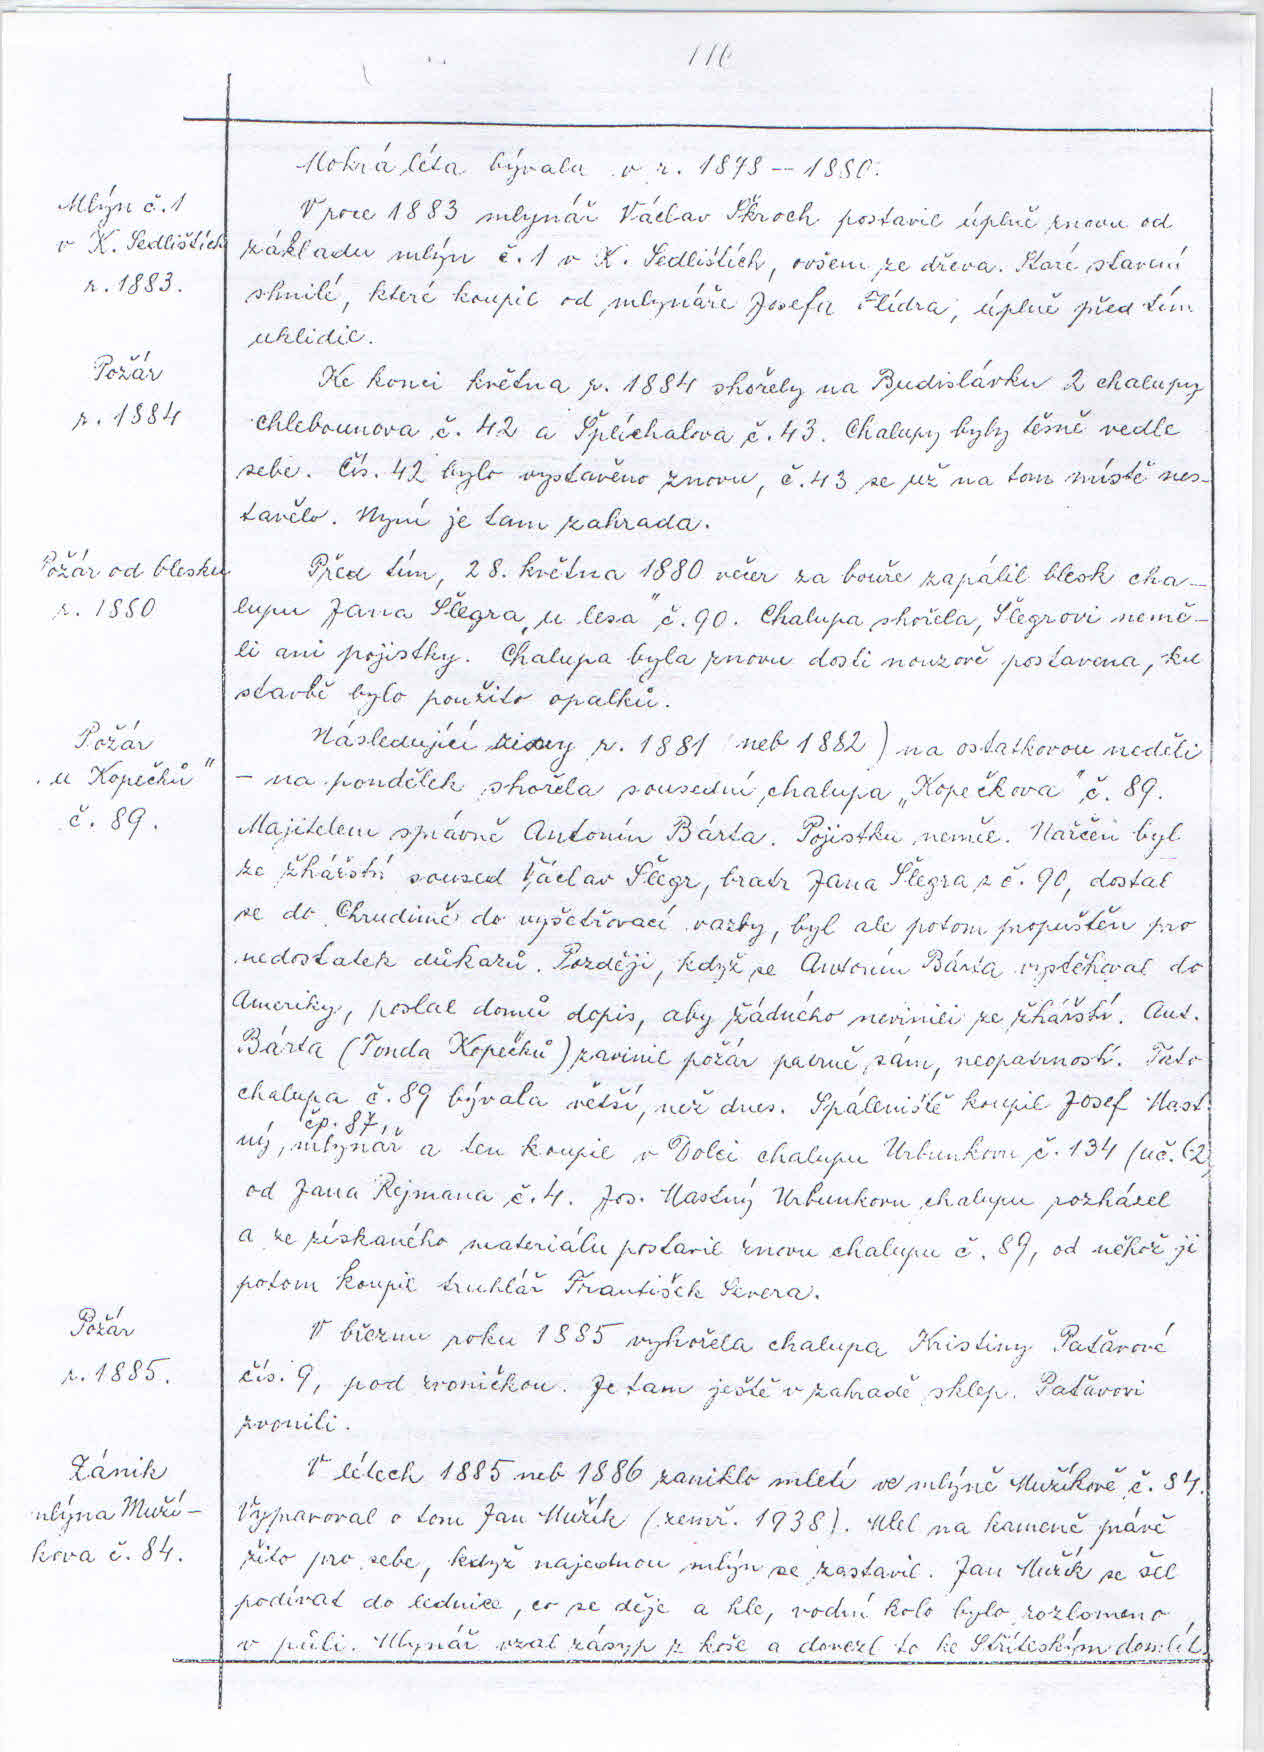 116
Mokrá léta bývala v r. 1878 -- 1880.
Mlýn č. 1
v K. Sedlištích
r. 1883.
V roce 1883 mlynář Václav Škroch postavil úplně znovu od
základu mlýn č. 1 v K. Sedlištích, ovšem ze dřeva. Staré stavení
shnilé, které koupil od mlynáře Josefa Flídra, úplně před tím
uklidil.
Požár
r. 1884
Ke konci května r. 1884 shořely na Budislávku 2 chalupy
Chlebounova č. 42 a Šplíchalova č. 43. Chalupy byly těsně vedle
sebe. Čís. 42 bylo vystavěno znovu, č. 43 se už na tom místě nes-
tavělo. Nyní je tam zahrada.
Požár od blesku
r. 1880
Před tím, 28. května 1880 večer za bouře zapálil blesk cha-
lupu Jana Šlegra „u lesa" č. 90. Chalupa shořela, Šlegrovi nemě-
li ani pojistky. Chalupa byla znovu dosti nouzově postavena, ku
stavbě bylo použito opalků.
Požár
„u Kopečků"
č. 89.
Následující zimy r. 1881 neb 1882) na ostatkovou neděli
- na pondělek shořela sousední chalupa „Kopečkova" č. 89.
Majitelem správně Antonín Bárta. Pojistku neměl. Nařčen byl
ze žhářství soused Václav Šlegr, bratr Jana Šlegra z č. 90, dostal
se do Chrudimě do vyšetřovací vazby, byl ale potom propuštěn pro
nedostatek důkazů. Později, když se Antonín Bárta vystěhoval do
Ameriky, poslal domů dopis, aby žádného nevinili ze žhářství. Ant.
Bárta (Tonda Kopečků) zavinil požár patrně sám, neopatrností. Tato
chalupa č. 89 bývala větší, než dnes. Spáleniště koupil Josef Hast-
čp. 87,
ný, mlynář a ten koupil v Dolci chalupu Urbunkovu č. 134 (uč. 62)
od Jana Rejmana č. 4. Jos. Hastný Urbunkovu chalupu rozházel
a ze získaného materiálu postavil znovu chalupu č. 89, od něhož ji
potom koupil truhlář František Severa.
Požár
r. 1885.
V březnu roku 1885 vyhořela chalupa Kristiny Paťavové
čís. 9, pod zvoničkou. Je tam ještě v zahradě sklep. Paťavovi
zvonili.
Zánik
mlýna Muží-
kova č. 84.
V létech 1885 neb 1886 zaniklo mletí ve mlýně Mužíkově č. 84.
Vypravoval o tom Jan Mužík (zemř. 1938). Mlel na kameně právě
žito pro sebe, když najednou mlýn se zastavil. Jan Mužík se šel
podívat do lednice, co se děje a hle, vodní kolo bylo rozlomeno
v půli. Mlynář vzal zásyp z koše a dovezl to ke Stříteským domlít.